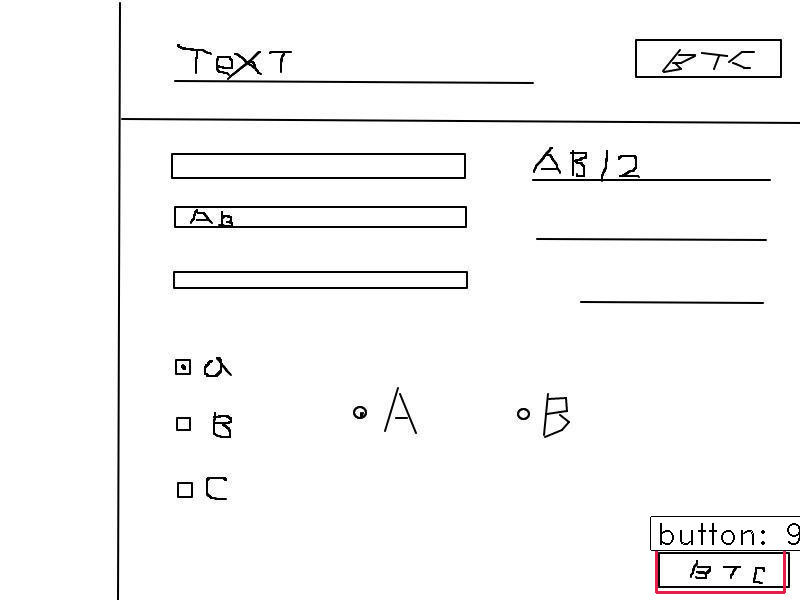 TexT
BTC
AB12
AB
a
B
A
B
C
button: 9
BTC